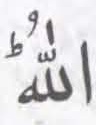 اللّٰهُؕ